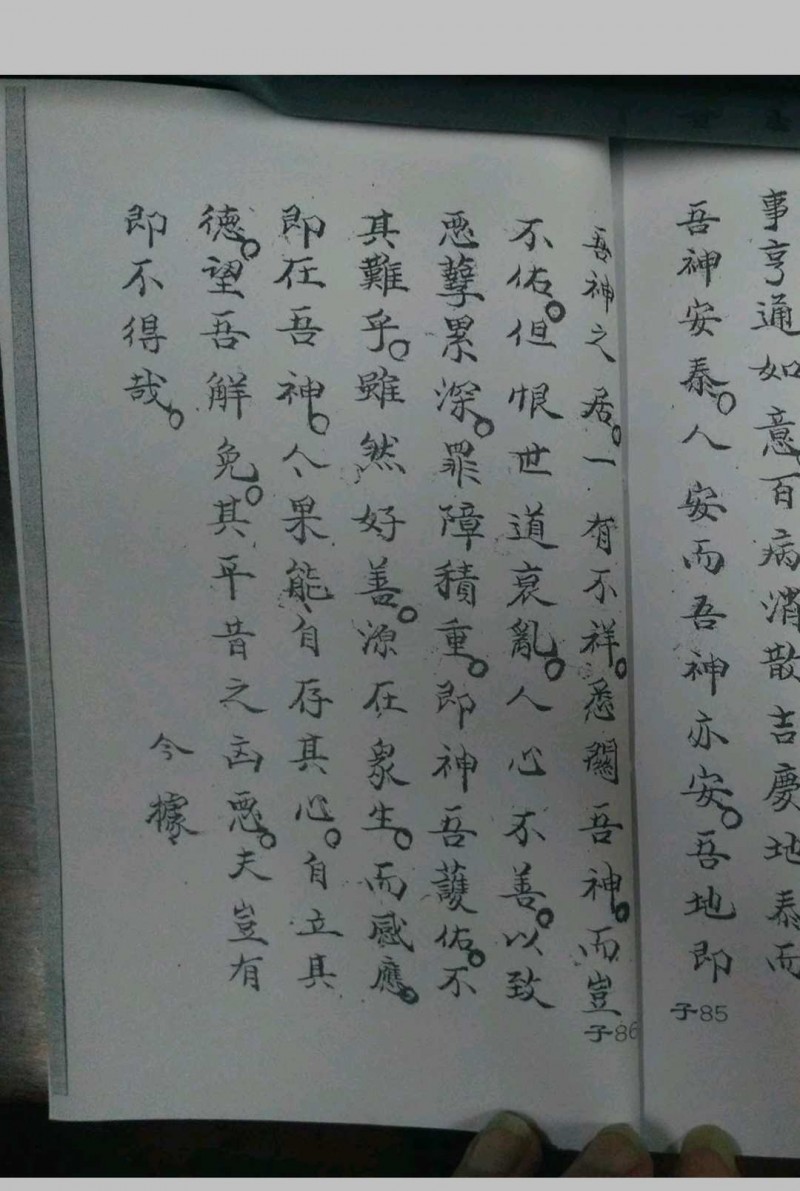 事亨通如意百病消散吉慶地泰而
吾神安泰。人安而吾神亦安。吾地即
子85
吾神之居。一有不祥。悉關吾神。而豈
子86
不佑。但恨世道衰亂。人心不善。以致
惡孽累深。罪障積重。即神吾護佑。不
其難乎。雖然好善。源在衆生。而感應。
即在吾神。人果能自存其心。自立其
德。望吾解免。其平昔之凶惡。夫豈有
即不得哉。
今據